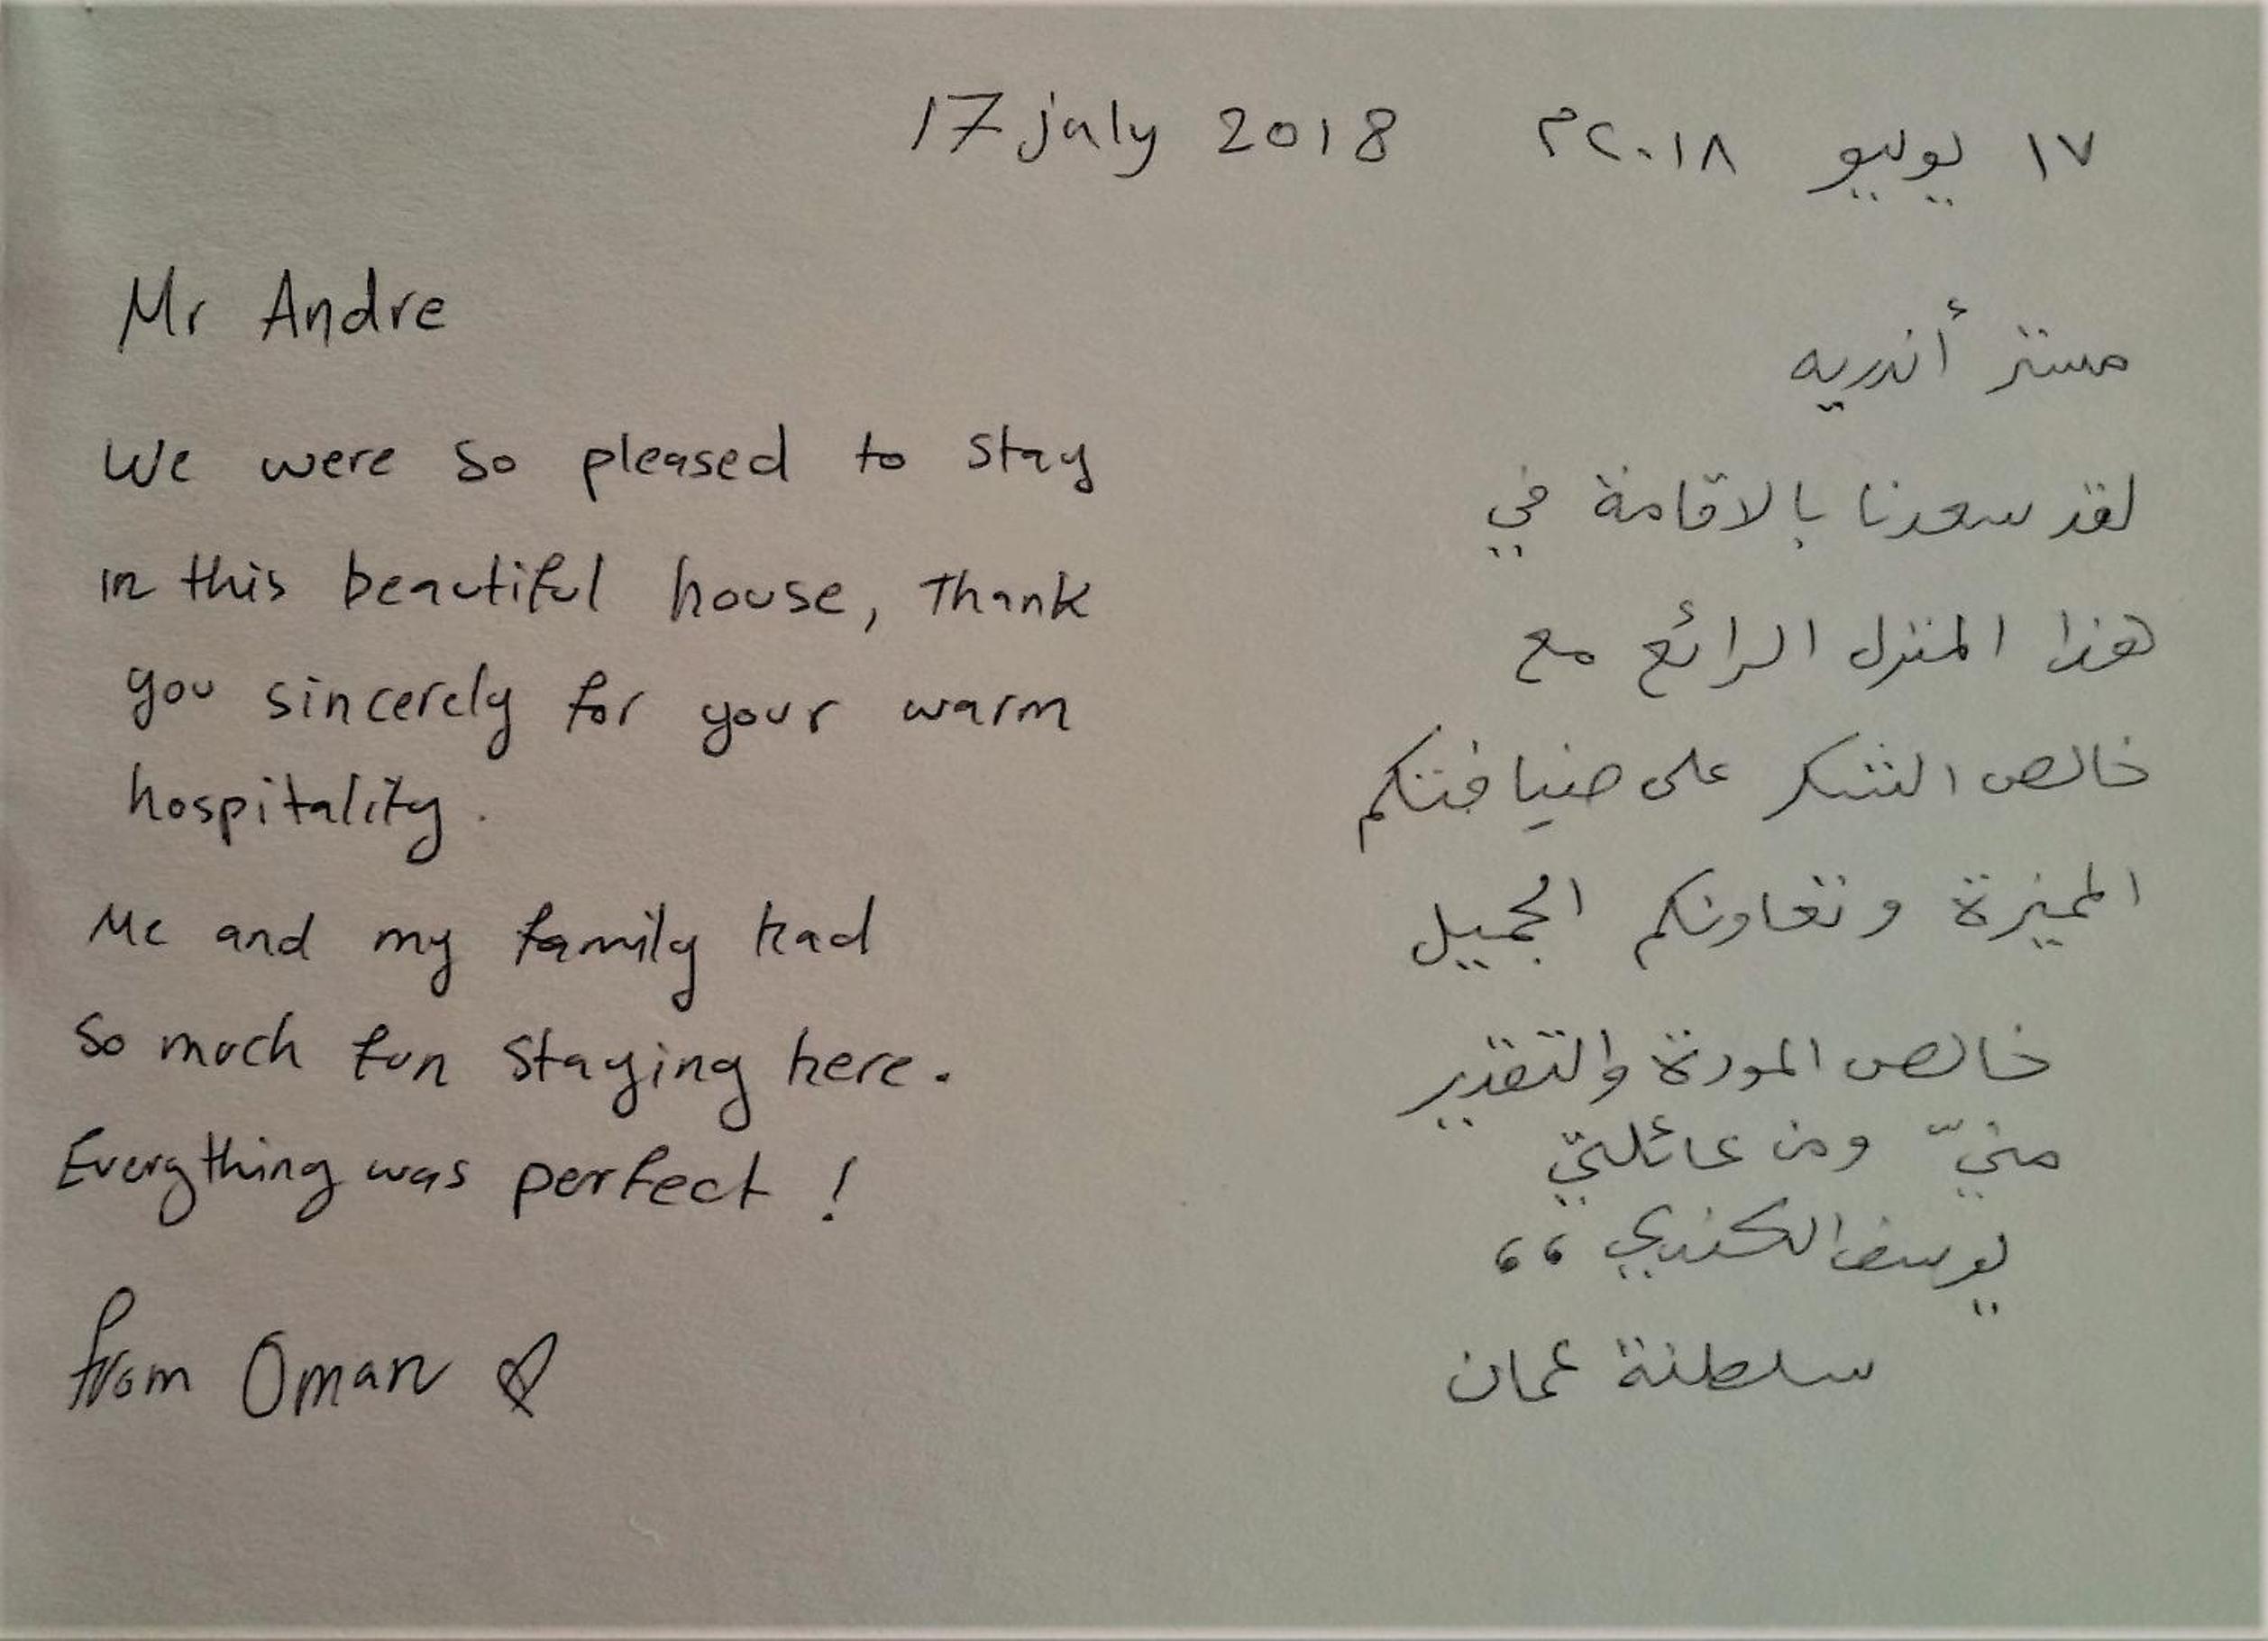 17 july 2018
١٧ يوليو ٢٠١٨م
Mr Andre
We were so pleased to stay
in this beautiful house, Thank
you sincerely for your warm
hospitality.
Me and my family had
so much fun staying here.
Everything was perfect !
from Oman
مستر أندريه
لقد سعدنا بالاقامة في
هذا المنزل الرائع مع
خالص الشكر على ضيافتكم
المميزة وتعاونكم الجميل
خالص المودة والتقدير
منيّ ومن عائلتي
يوسف الكندي ،،
سلطنة عمان